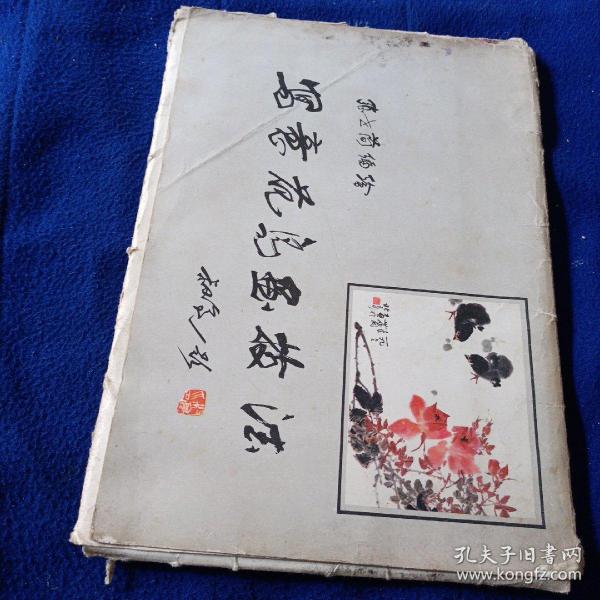 寫意花鳥畫技法
張世簡編繪
孔夫子旧书网
www.kongfz.com